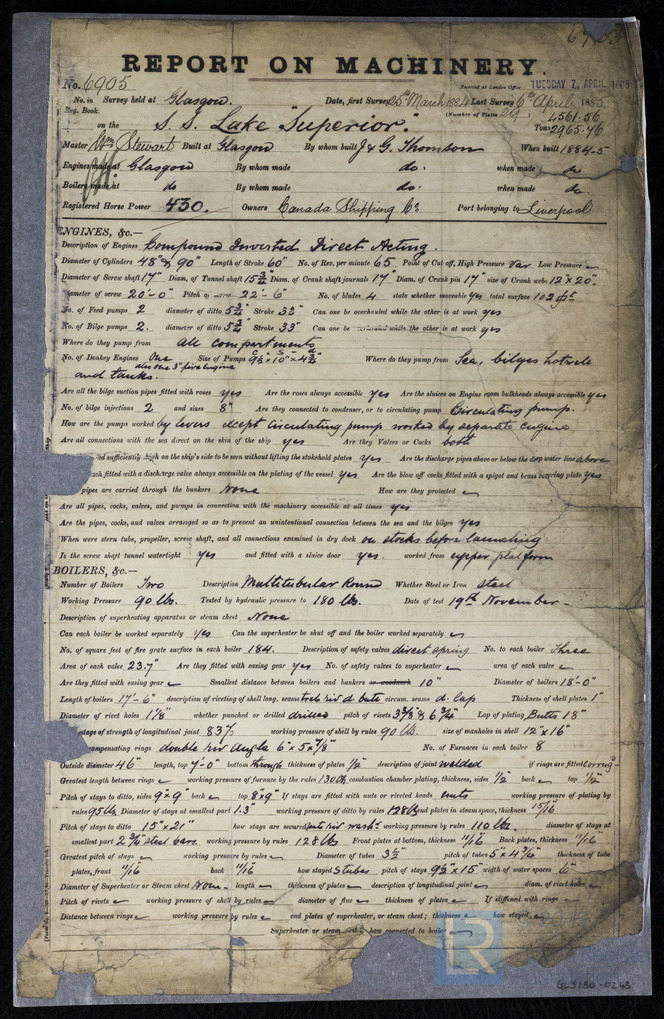 6903
REPORT ON MACHINERY.
No. 6905
Received at London Office TUESDAY 7 APRIL 1885
No. in Survey held at Glasgow. Date, first Survey 25th March 1884 Last Survey 6th April 1885
Reg. Book. (Number of Visits 29) 4561.56
on the S.S. Lake "Superior". Tons 2965.46
Master Wm Stewart Built at Glasgow By whom built J & G. Thomson When built 1884-5
Engines made at Glasgow By whom made do. when made do
Boilers made at do By whom made do. when made do
Registered Horse Power 430. Owners Canada Shipping Co Port belonging to Liverpool
ENGINES, &c.—
Description of Engines Compound Inverted Direct Acting.
Diameter of Cylinders 48" & 90" Length of Stroke 60" No. of Rev. per minute 65 Point of Cut off, High Pressure Var Low Pressure
Diameter of Screw shaft 17" Diam. of Tunnel shaft 15 3/4 Diam. of Crank shaft journals 17" Diam. of Crank pin 17" size of Crank webs 12" x 20"
diameter of screw 20'-0" Pitch of screw 22'-6" No. of blades 4 state whether moveable yes total surface 102
No. of Feed pumps 2 diameter of ditto 5 3/4 Stroke 33" Can one be overhauled while the other is at work yes
No. of Bilge pumps 2. diameter of ditto 5 3/4 Stroke 33" Can one be overhauled while the other is at work yes
Where do they pump from all compartments
No. of Donkey Engines One Size of Pumps Where do they pump from Sea, bilges hotwell
and tanks.
Are all the bilge suction pipes fitted with roses yes Are the roses always accessible yes Are the sluices on Engine room bulkheads always accessible yes
No. of bilge injections 2 and sizes 8" Are they connected to condenser, or to circulating pump Circulating pump.
How are the pumps worked by levers except circulating pump worked by separate engine
Are all connections with the sea direct on the skin of the ship yes Are they Valves or Cocks both
sufficiently high on the ship's side to be seen without lifting the stokehold plates yes Are the discharge pipes above or below the deep water line above
each fitted with a discharge valve always accessible on the plating of the vessel yes Are the blow off cocks fitted with a spigot and brass covering plate yes
pipes are carried through the bunkers None How are they protected
Are all pipes, cocks, valves, and pumps in connection with the machinery accessible at all times yes
Are the pipes, cocks, and valves arranged so as to prevent an unintentional connection between the sea and the bilges yes
When were stern tube, propeller, screw shaft, and all connections examined in dry dock on stocks before launching
Is the screw shaft tunnel watertight yes and fitted with a sluice door yes. worked from upper platform
BOILERS, &c.—
Number of Boilers Two Description Multitubular Round Whether Steel or Iron steel
Working Pressure 90 lbs. Tested by hydraulic pressure to 180 lbs. Date of test 19th November
Description of superheating apparatus or steam chest None
Can each boiler be worked separately yes Can the superheater be shut off and the boiler worked separately
No. of square feet of fire grate surface in each boiler 184. Description of safety valves direct spring No. to each boiler three
Area of each valve 23.7" Are they fitted with easing gear yes No. of safety valves to superheater area of each valve
Are they fitted with easing gear Smallest distance between boilers and bunkers or woodwork 10" Diameter of boilers 18'-0"
Length of boilers 17'-6" description of riveting of shell long. seams treb riv d butt circum. seams d lap Thickness of shell plates 1"
Diameter of rivet holes 1 1/8" whether punched or drilled drilled pitch of rivets 3 3/8 & 6 3/4" Lap of plating Butts 18"
percentage of strength of longitudinal joint 83% working pressure of shell by rules 90 lbs. size of manholes in shell 12" x 16"
compensating rings double riv angle 6" x 5" x 7/8" No. of Furnaces in each boiler 8
Outside diameter 46" length, top 7'-0" bottom through thickness of plates 1/2" description of joint welded if rings are fitted corrug.
Greatest length between rings working pressure of furnace by the rules 130 lb combustion chamber plating, thickness, sides 1/2 back top 1/2"
Pitch of stays to ditto, sides 9" x 9" back top 8" x 9" If stays are fitted with nuts or riveted heads nuts working pressure of plating by
rules 95 lb Diameter of stays at smallest part 1.3" working pressure of ditto by rules 128 lb end plates in steam space, thickness 15/16
Pitch of stays to ditto 15" x 21" how stays are secured working pressure by rules 110 lbs. diameter of stays at
smallest part 2 3/16" steel bars. working pressure by rules 128 lb Front plates at bottom, thickness 11/16 Back plates, thickness 11/16
Greatest pitch of stays working pressure by rules Diameter of tubes 3 1/2 pitch of tubes 5" x 4 3/4" thickness of tube
plates, front 11/16 back 11/16 how stayed S tubes pitch of stays 9 1/2" x 15" width of water spaces 6"
Diameter of Superheater or Steam chest None length thickness of plates description of longitudinal joint diam. of rivet holes
Pitch of rivets working pressure of shell by rules diameter of flue thickness of plates If stiffened with rings
Distance between rings working pressure by rules end plates of superheater, or steam chest; thickness how stayed
Superheater or steam chest; how connected to boiler
GLS180-0243